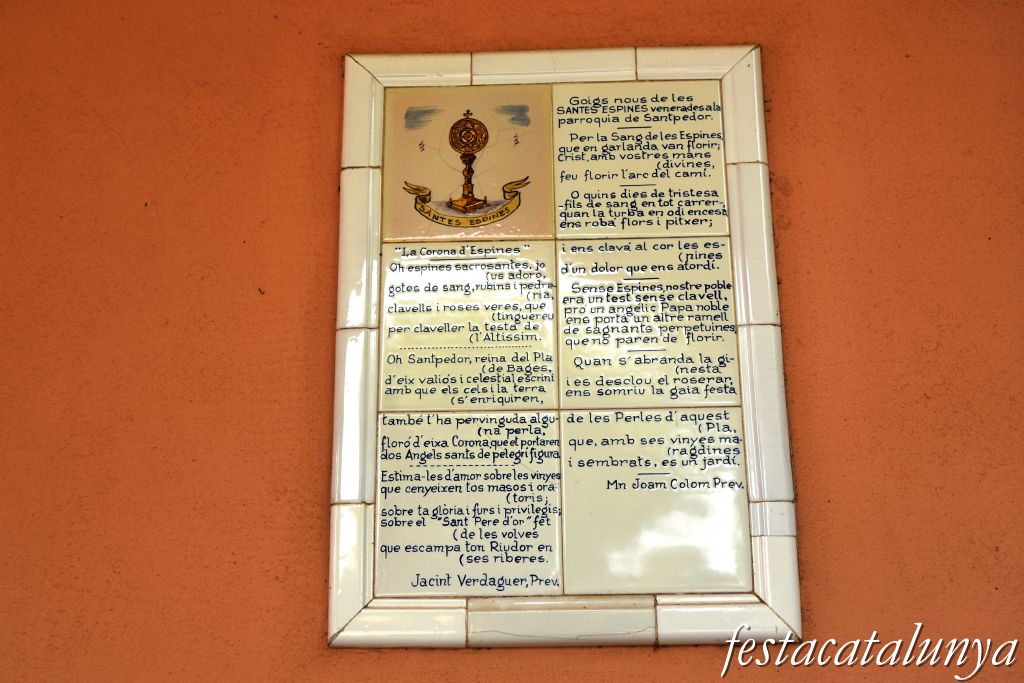 SANTES ESPINES
"La Corona d'Espines"
Oh espines sacrosantes, jo
(us adoro,
gotes de sang, rubins i pedre-
(ria,
clavells i roses veres, que
(tinguereu
per claveller la testa de
(l'Altíssim.
Oh Santpedor, reina del Pla
(de Bages,
d'eix valiós i celestial escrini
amb que els cels i la terra
(s'enriquiren,
també t'ha pervinguda algu-
(na perla,
floró d'eixa Corona que et portaren
dos Angels sants de pelegrí figura.
Estima-les d'amor sobre les vinyes
que cenyeixen tos masos i ora-
(toris;
sobre ta glòria i furs i privilegis;
sobre el "Sant Pere d'or" fet
(de les volves
que escampa ton Riudor en
(ses riberes.
Jacint Verdaguer, Prev.
Goigs nous de les
SANTES ESPINES venerades a la
parroquia de Santpedor.
Per la Sang de les Espines
que en garlanda van florir;
Crist, amb vostres mans
(divines,
feu florir l'arc del camí.
O quins dies de tristesa
-fils de sang en tot carrer-,
quan la turba en odi encesa
ens robà flors i pitxer;
i ens clavà al cor les es-
(pines
d'un dolor que ens atordí.
Sense Espines, nostre poble
era un test sense clavell,
pro un angèlic Papa noble
ens porta un altre ramell
de sagnants perpetuines
que no paren de florir.
Quan s'abranda la gi-
(nesta
i es desclou el roserar,
ens somriu la gaia festa
de les Perles d'aquest
(Pla,
que, amb ses vinyes ma-
(ragdines
i sembrats, es un jardí.
Mn Joam Colom Prev.
festacatalunya